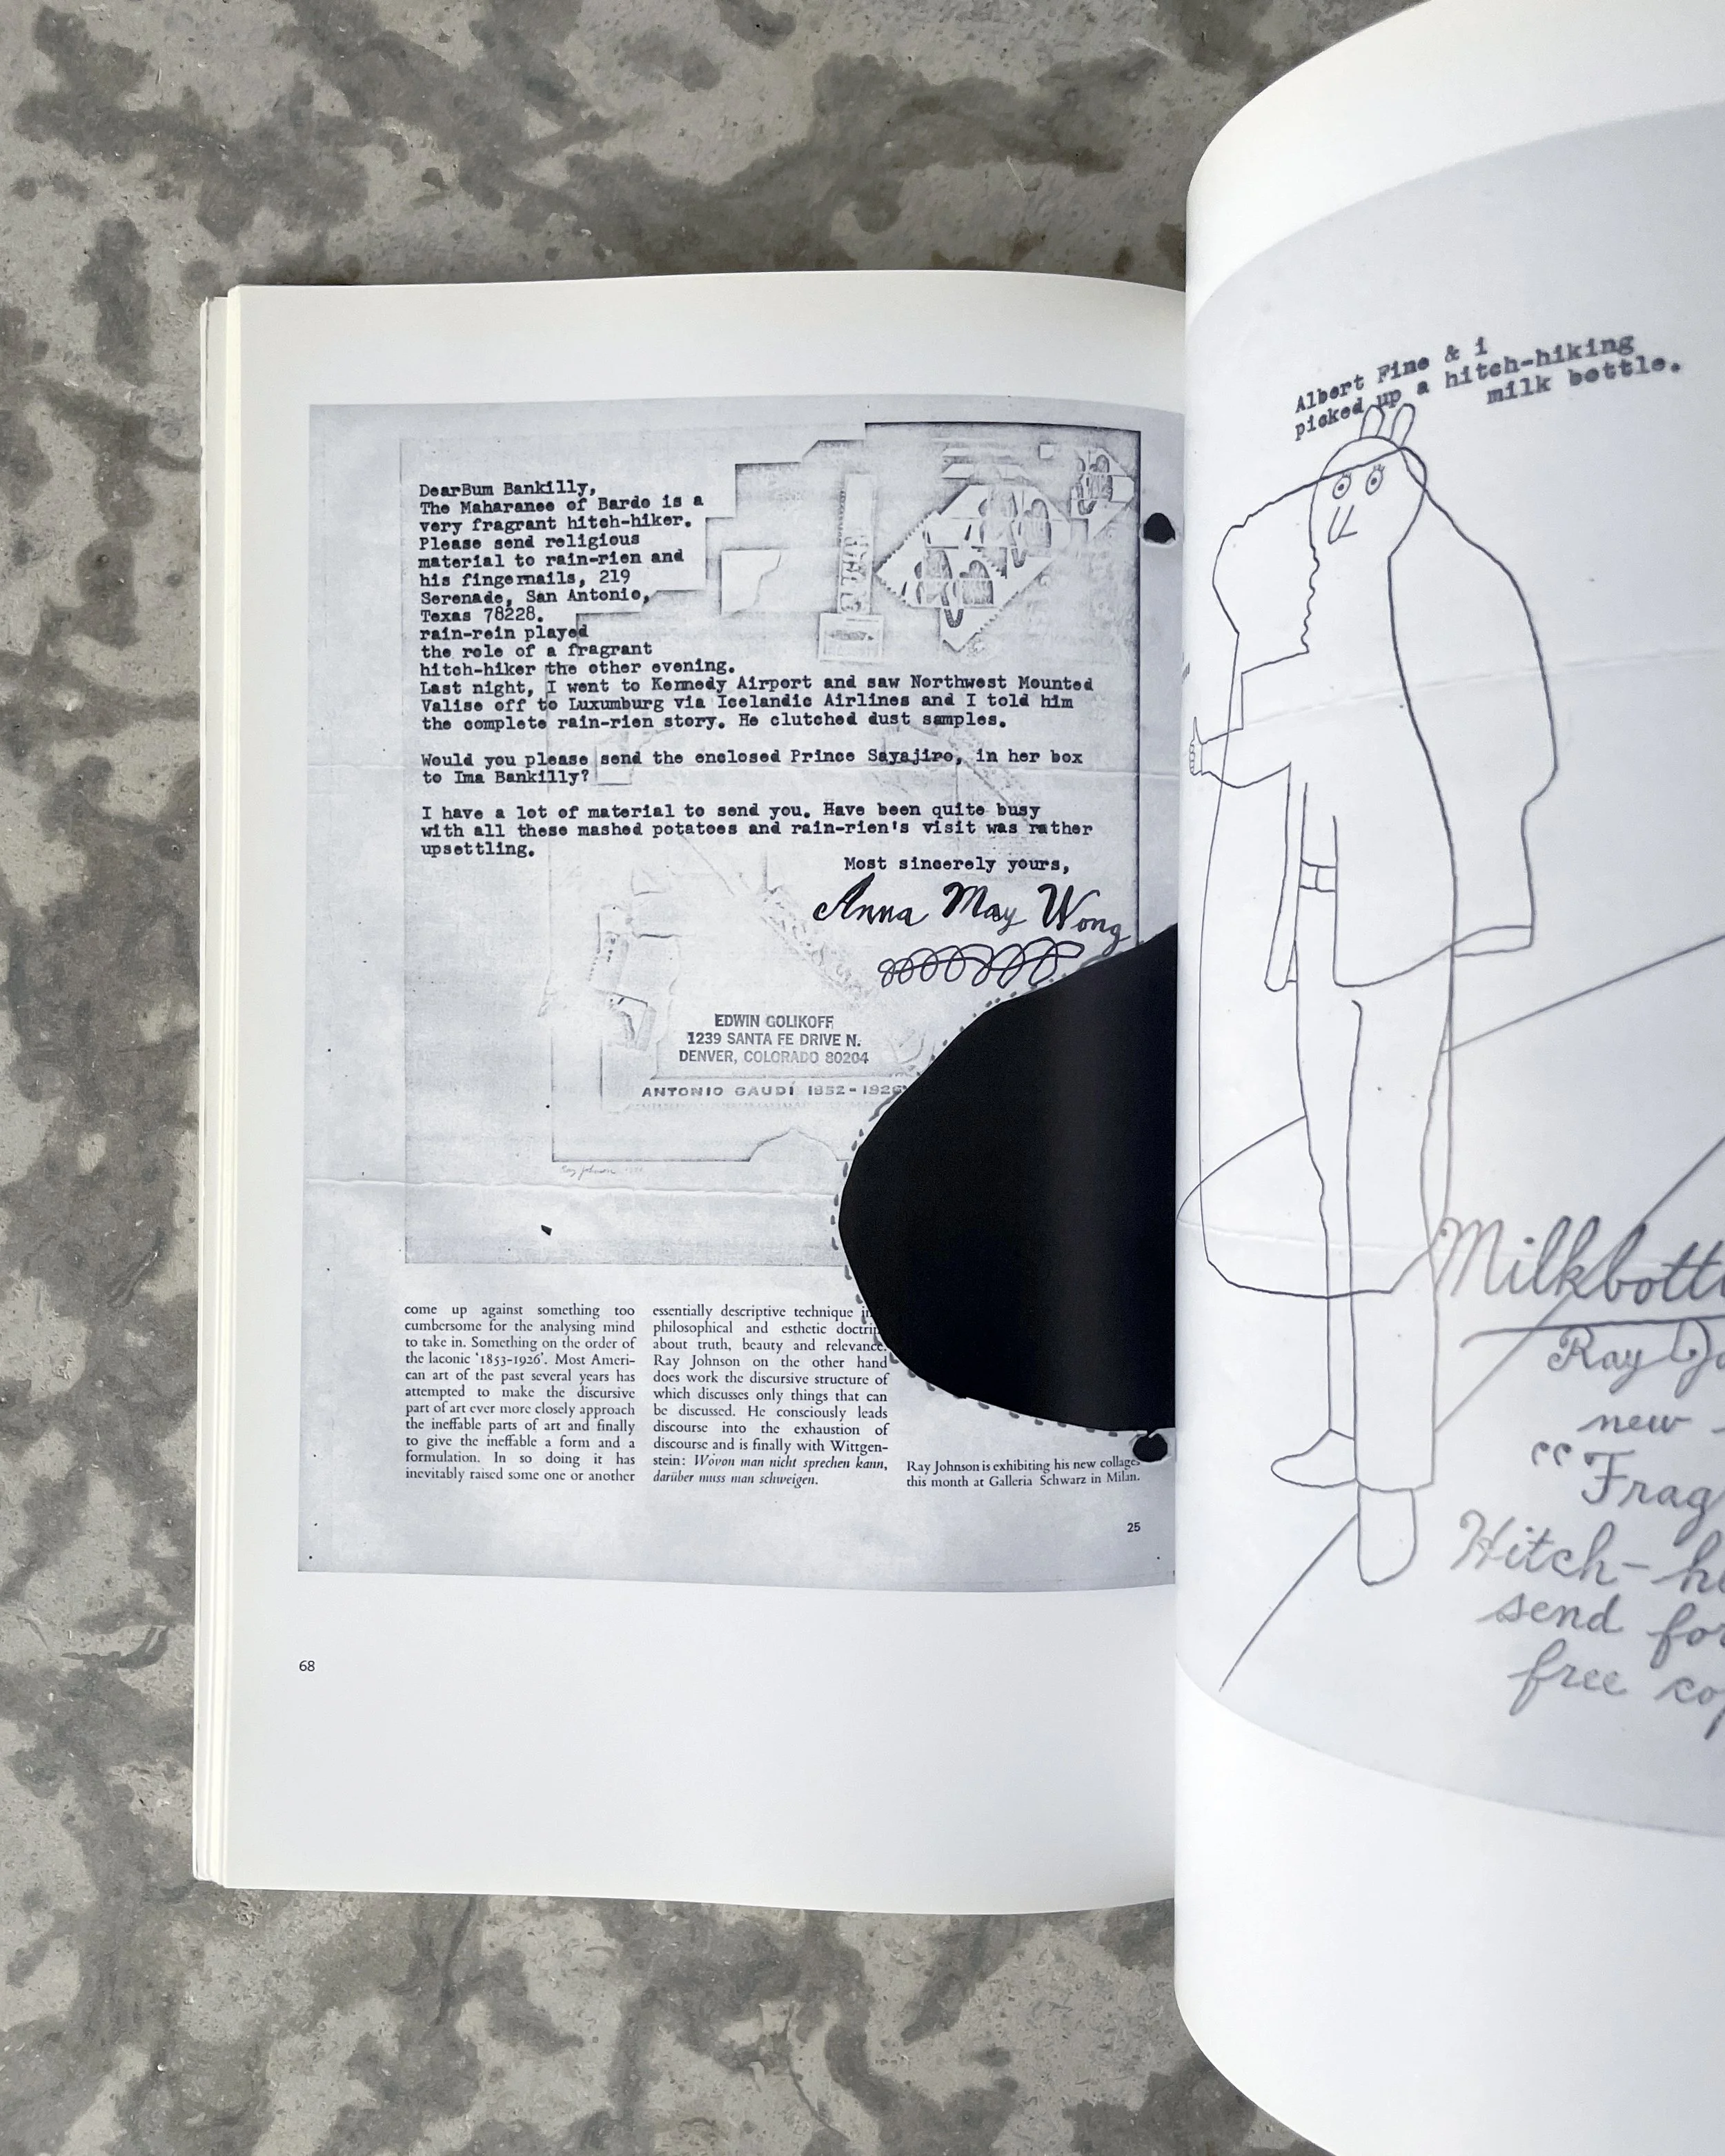 DearBum Bankilly,
The Maharanee of Bardo is a
very fragrant hitch-hiker.
Please send religious
material to rain-rien and
his fingernails, 219
Serenade, San Antonio,
Texas 78228.
rain-rein played
the role of a fragrant
hitch-hiker the other evening.
Last night, I went to Kennedy Airport and saw Northwest Mounted
Valise off to Luxumburg via Icelandic Airlines and I told him
the complete rain-rien story. He clutched dust samples.
Would you please send the enclosed Prince Sayajiro, in her box
to Ima Bankilly?
I have a lot of material to send you. Have been quite busy
with all these mashed potatoes and rain-rien's visit was rather
upsettling.
Most sincerely yours,
Anna May Wong
EDWIN GOLIKOFF
1239 SANTA FE DRIVE N.
DENVER, COLORADO 80204
ANTONIO GAUDÍ 1852-1926
Ray Johnson
come up against something too
cumbersome for the analysing mind
to take in. Something on the order of
the laconic '1853-1926'. Most Ameri-
can art of the past several years has
attempted to make the discursive
part of art ever more closely approach
the ineffable parts of art and finally
to give the ineffable a form and a
formulation. In so doing it has
inevitably raised some one or another
essentially descriptive technique
philosophical and esthetic doctrin
about truth, beauty and relevance.
Ray Johnson on the other hand
does work the discursive structure of
which discusses only things that can
be discussed. He consciously leads
discourse into the exhaustion of
discourse and is finally with Wittgen-
stein: Wovon man nicht sprechen kann,
darüber muss man schweigen.
Ray Johnson is exhibiting his new collages
this month at Galleria Schwarz in Milan.
25
68
Albert Fine & i
picked up a hitch-hiking
milk bottle.
Milkbott
Ray Jo
new
"Frag
Hitch-h
send for
free cop